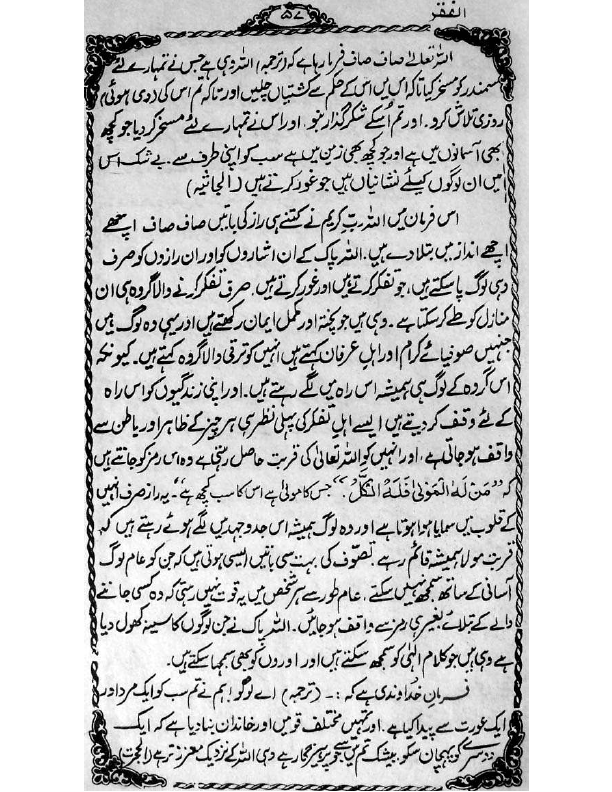 الفقر
۵۷
اللہ تعالےٰ صاف صاف فرما رہا ہے کہ (ترجمہ) اللہ وہی ہے جس نے تمہارے لئے
سمندر کو مسخر کیا تاکہ اس میں اس کے حکم سے کشتیاں چلیں اور تاکہ تم اس کی (دی ہوئی)
روزی تلاش کرو۔ اور تم اُسکے شکر گذار بنو۔ اور اس نے تمہارے لئے مسخر کر دیا جو کچھ
بھی آسمانوں میں ہے اور جو کچھ بھی زمین میں ہے سب کو اپنی طرف سے۔ بے شک اس
میں ان لوگوں کیلئے نشانیاں ہیں جو غور کرتے ہیں (الجاثیہ)
اس فرمان میں اللہ ربّ کریم نے کتنے ہی راز کی باتیں صاف صاف اچھے
اچھے انداز میں بتلا دے ہیں۔ اللہ پاک کے ان اشاروں کو اور ان رازوں کو صرف
وہی لوگ پا سکتے ہیں، جو تفکر کرتے ہیں اور غور کرتے ہیں۔ صرف تفکر کرنے والا گروہ ہی ان
منازل کو طے کر سکتا ہے۔ وہی ہیں جو پختہ اور مکمل ایمان رکھتے ہیں اور یہی وہ لوگ ہیں
جنہیں صوفیائے کرام اور اہلِ عرفان کہتے ہیں انہیں کو ترقی والا گروہ کہتے ہیں۔ کیونکہ
اس گروہ کے لوگ ہی ہمیشہ اس راہ میں لگے رہتے ہیں۔ اور اپنی زندگیوں کو اس راہ
کے لئے وقف کر دیتے ہیں ایسے اہلِ تفکر کی پہلی نظر ہی ہر چیز کے ظاہر اور باطن سے
واقف ہو جاتی ہے، اور انہیں کو اللہ تعالیٰ کی قربت حاصل رہتی ہے وہ اس رمز کو جانتے ہیں
کہ "مَنْ لَهُ الْمَوْلىٰ فَلَهُ الْكُلُّ" جس کا مولیٰ ہے اس کا سب کچھ ہے"۔ یہ راز صرف انہیں
کے قلوب میں سمایا ہوا ہوتا ہے اور وہ لوگ ہمیشہ اس جدوجہد میں لگے ہوئے رہتے ہیں کہ
قربتِ مولا ہمیشہ قائم رہے۔ تصوّف کی بہت سی باتیں ایسی ہوتی ہیں کہ جن کو عام لوگ
آسانی کے ساتھ سمجھ نہیں سکتے۔ عام طور سے ہر شخص میں یہ قوت نہیں رہتی کہ وہ کسی جاننے
والے کے بتلائے بغیر ہی رمز سے واقف ہو جائیں۔ اللہ پاک نے جن لوگوں کا سینہ کھول دیا
ہے وہی ہیں جو کلام الٰہی کو سمجھ سکتے ہیں اور اوروں کو بھی سمجھا سکتے ہیں۔
فرمانِ خداوندی ہے کہ :۔ (ترجمہ) اے لوگو! ہم نے تم سب کو ایک مرد اور
ایک عورت سے پیدا کیا ہے۔ اور تمہیں مختلف قومیں اور خاندان بنا دیا ہے کہ ایک
دوسرے کو پہچان سکو۔ بیشک تم میں سے جو پرہیزگار ہے وہی اللہ کے نزدیک معزز تر ہے (الحجرٰت)